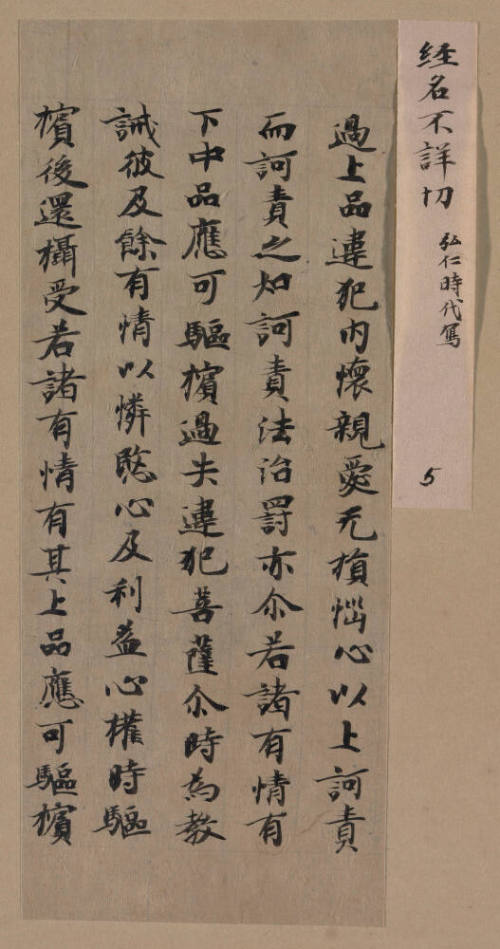 経名不詳切 弘仁時代写
5
過上品違犯内懐親愛无損惱心以上訶責
而訶責之如訶責法治罰亦尒若諸有情有
下中品應可驅擯過失違犯菩薩尒時為教
誡彼及餘有情以憐愍心及利益心權時驅
擯後還攝受若諸有情有其上品應可驅擯